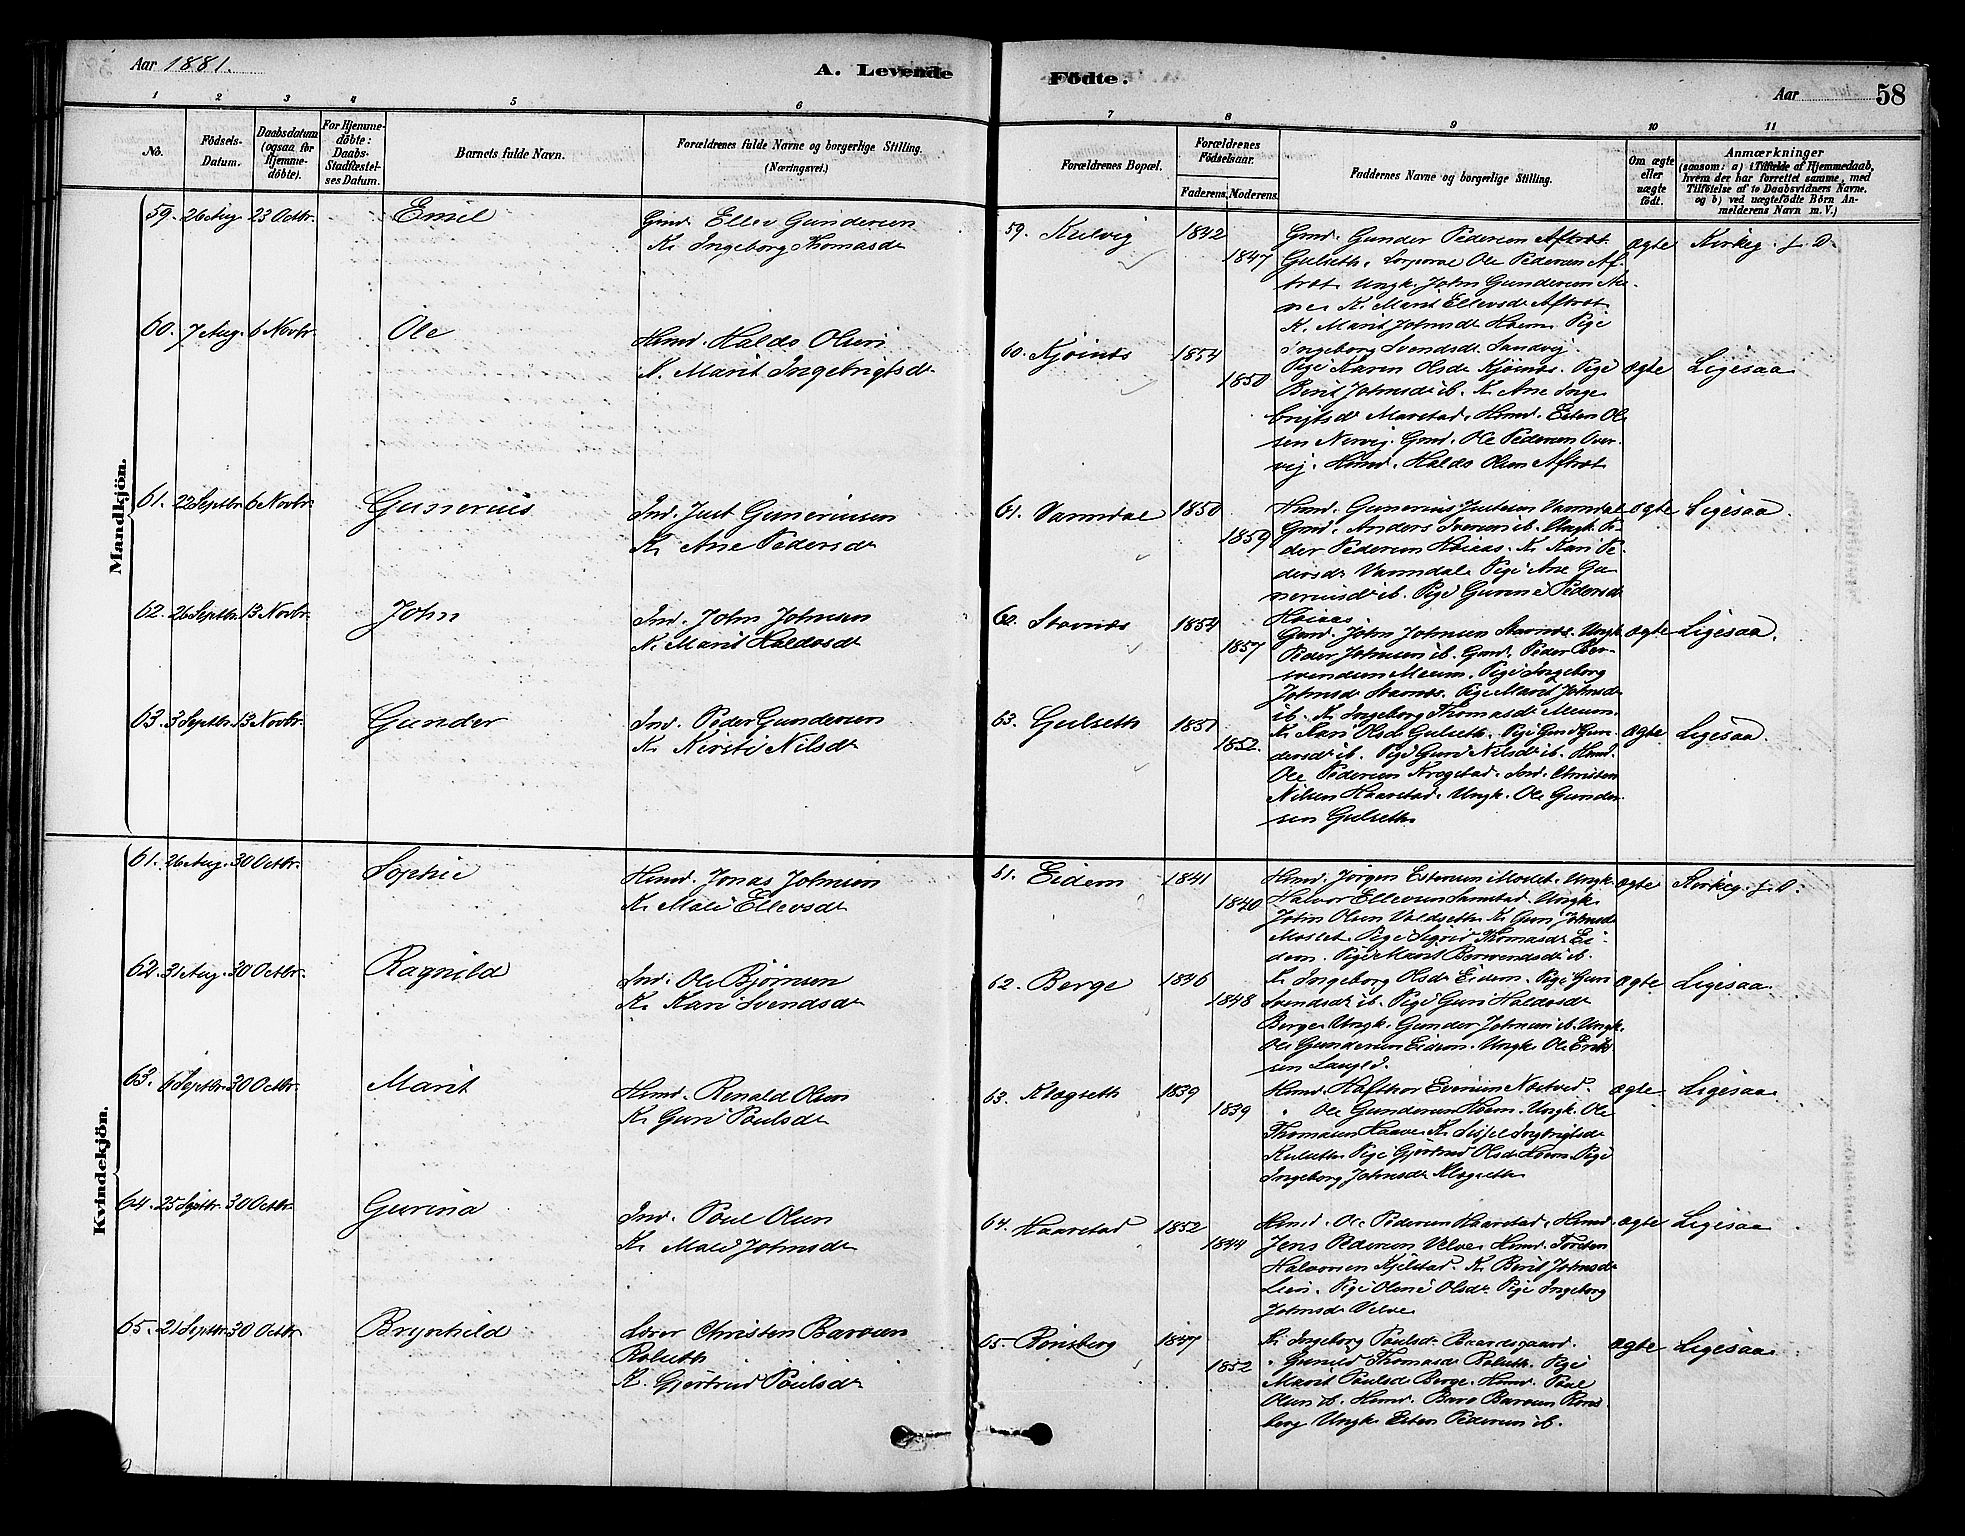 Aar 1881.
A. Levende Födte.
Aar 58
1 2 3 4 5 6 7 8 9 10 11
No.
Födsels-
Datum.
Daabsdatum
(ogsaa for
Hjemme-
döbte).
For Hjemme-
döbte:
Daabs-
Stadfæstel-
ses Datum.
Barnets fulde Navn.
Forældrenes fulde Navne og borgerlige Stilling.
(Næringsvei.)
Forældrenes Bopæl.
Forældrenes
Födselsaar.
Faderens. Moderens.
Faddernes Navne og borgerlige Stilling.
Om ægte
eller
uægte
födt.
Anmærkninger
(saasom: a) i Tilfælde af Hjemmedaab,
hvem der har forrettet samme, med
Tilföielse af to Daabsvidners Navne.
og b) ved uægtefödte Börn An-
melderens Navn m. V.)
Mandkjön.
59. 26 Aug 23 Octbr. Emil
Gmd. Ellev Gundersen
K. Ingeborg Thomasdr
59. Kulvig 1842
1847
Gmd. Gunder Pedersen Aftret
Gulseth. Corporal Ole Pedersen Af-
tret Ungk. John Gundersen
K. Marit Ellevsdr Aftret
K. Marit Johnsdr Hoem Pige
Ingeborg Svendsdr Sandvig.
ægte Kirkeg. f. D.
60. 7 Aug. 6 Novbr. Ole
Hmd. Haldo Olsen
K. Marit Ingebrigtsdr
60. Kjøinæs 1854
1850
Pige Karen Olsdr Kjøinæs. Pige
Berit Johnsdr ib. K. Ane Inge
brigtsdr Marstad. Hmd. Esten Ol
sen Nervig. Gmd. Ole Pedersen Over-
vig. Hmd. Haldo Olsen Aftret
ægte Ligesaa
61. 22 Septbr. 6 Novbr. Gunerius
Ind. Just Guneriusen
K. Ane Pedersdr
61. Varmdal 1850
1859
Hmd. Gunerius Justsen Varmdal
Gmd. Anders Iversen ib. Ungk. Pe-
der Pedersen Høiaas. K. Kari Pe-
dersdr Varmdal. Pige Ane Gu
neriusdr ib. Pige Gurine Pedersdr
Høiaas
ægte Ligesaa
62. 26 Septbr. 13 Novbr. John
Ind. John Johnsen
K. Marit Haldosdr
62. Stavnæs 1854
1857
Gmd. John Johnsen Stavnæs. Ungk
Peder Johnsen ib. Gmd. Peder Ber-
svendsen Meum. Pige Ingeborg
Johnsdr Stavnæs. Pige Marit Johnsdr
ib. K. Ingeborg Thomasdr Meum.
ægte Ligesaa.
63. 3 Septbr. 13 Novbr. Gunder
Ind. Peder Gundersen
K. Kirsti Nilsdr
63. Gulseth 1851
1852.
K. Kari Olsdr Gulseth. Pige Guri Gun-
dersdr ib. Pige Guri Nilsdr ib. Hmd.
Ole Pedersen Krogstad. Ind. Christen
Nilsen Haarstad. Ungk. Ole Gunder
sen Gulseth.
ægte Ligesaa.
Kvindekjön.
61. 26 Aug. 30 Octbr. Sophie
Hmd. Jonas Johnsen
K. Mali Ellevsdr
61. Eidem 1841
1840
Hmd. Jørgen Estensen Moslet. Ungk.
Halvor Ellevsen Samstad. Ungk.
John Olsen Valdseth. K. Guri Johnsdr
Moslet. Pige Sigrid Thomasdr Ei-
dem. Pige Marit Bersvendsdr ib.
ægte Kirkeg. f. D.
62. 31 Aug. 30 Octbr. Ragnild
Ind. Ole Bjørnsen
K. Kari Svendsdr
62. Berge 1846
1848
K. Ingeborg Olsdr Eidem. Pige Guri
Svendsdr ib. Pige Guri Haldosdr
Berge. Ungk. Gunder Johnsen ib. Ungk.
Ole Gundersen Eidem. Ungk. Ole Erik
sen
ægte Ligesaa.
63. 6 Septbr. 30 Octbr. Marit
Hmd. Renald Olsen
K. Guri Poulsdr
63. Klegseth 1839
1839
Hmd. Hafthor Evensen Nestved.
" Ole Gundersen Hoem. Ungk. Ole
Thomasen Haave. K. Sissel Ingbrigtsdr
Kulseth. Pige Gjertrud Olsdr Hoem. Pige
Ingeborg Johnsdr Klegseth
ægte Ligesaa.
64. 25 Septbr. 30 Octbr. Gurina
Ind. Poul Olsen
K. Mali Johnsdr
64. Haarstad 1852
1844
Hmd. Ole Pedersen Haarstad. Hmd.
Jens Pedersen Velve. Hmd. Torsten
Halvorsen Kjelstad. K. Berit Johnsdr
Lien. Pige Oline Olsdr. Pige Ingeborg
Johnsdr Velve
ægte Ligesaa
65. 21 Septbr. 30 Octbr. Brynhild
Lærer Christen Baroen
Rolseth
K. Gjertrud Poulsdr
65. Rønsberg 1847
1852
K. Ingeborg Poulsdr Baardsgaard.
" Gunild Thomasdr Rolseth. Pige
Marit Poulsdr Berge. Hmd. Poul
Olsen ib. Hmd. Baro Barosen Røns
berg Ungk. Esten Pedersen ib.
ægte Ligesaa.